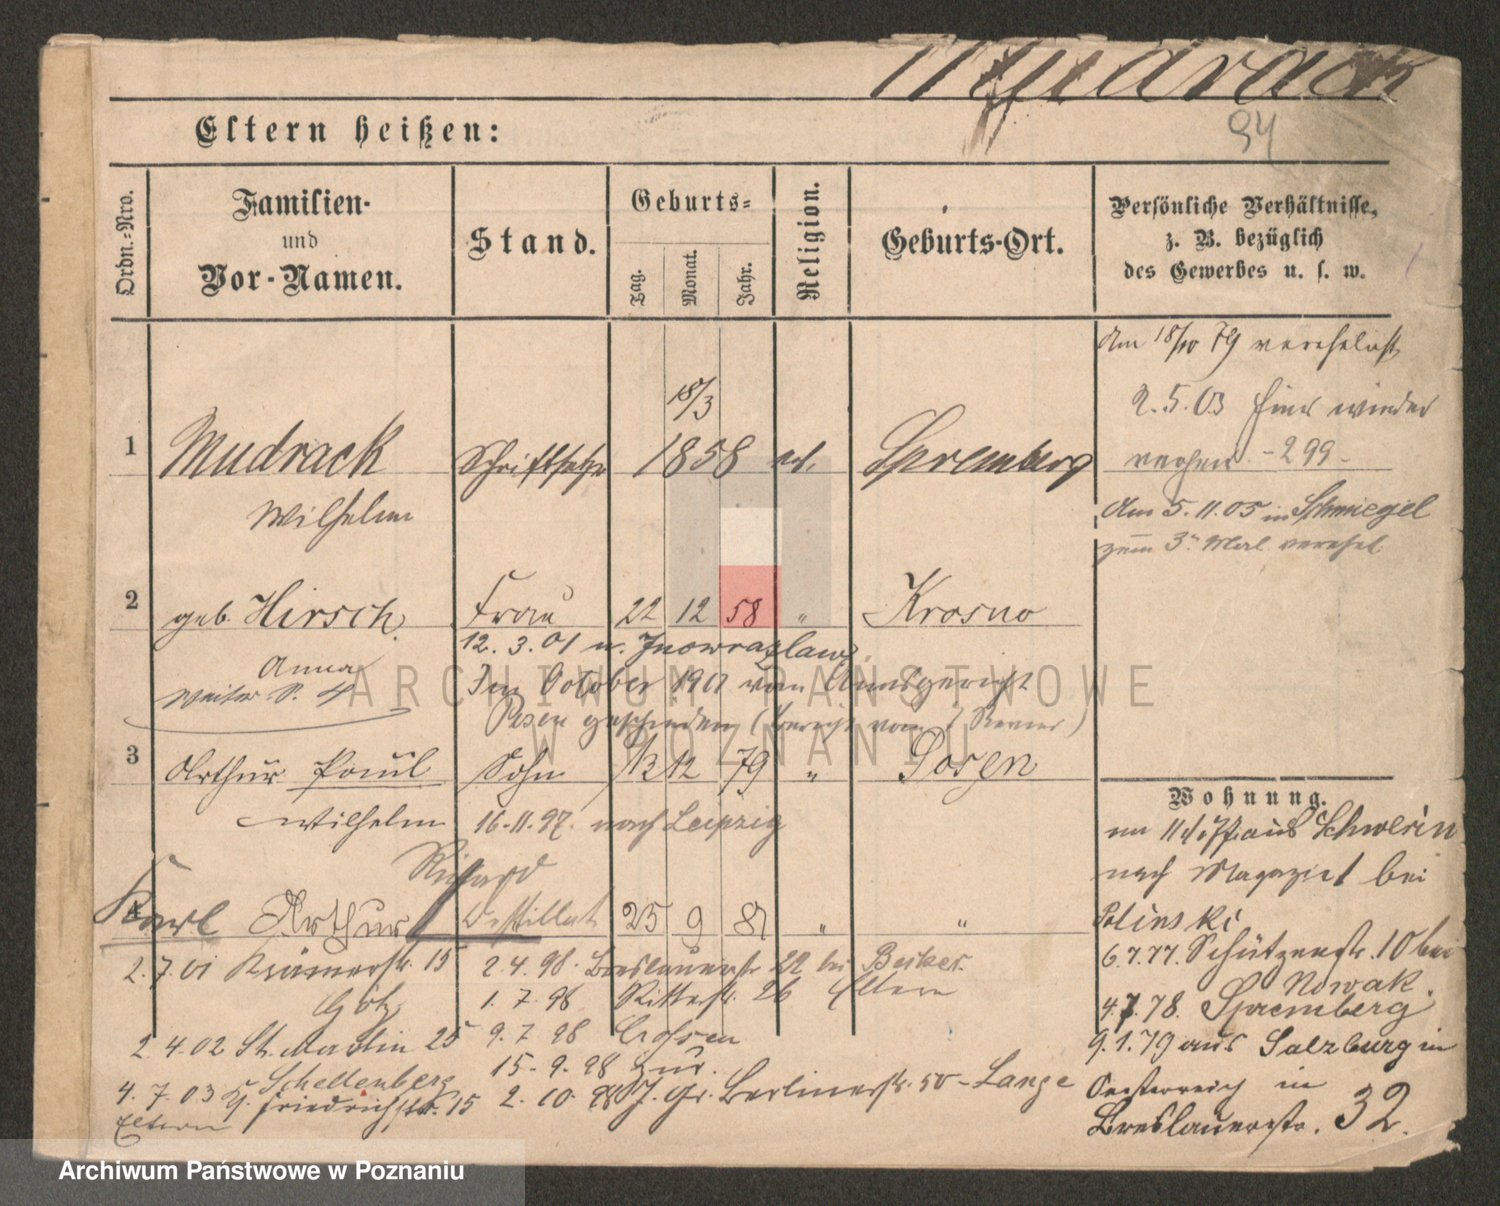 Mudrack
94
Eltern heißen:
Ordn.-Nro.
Familien-
und
Vor-Namen.
Stand.
Geburts-
Tag.
Monat.
Jahr.
Religion.
Geburts-Ort.
Persönliche Verhältnisse,
z. B. bezüglich
des Gewerbes u. s. w.
Am 18/10 79 verehelicht
2.5.03 hier wieder
- 299 -
Am 5.11.05 in Schmiegel
zum 3. Mal verehel.
18/3
1 Mudrack Schriftsetzer 1858 ev. Spremberg
Wilhelm
2 geb. Hirsch Frau 22 12 58 " Krosno
12. 3. 01 n. Inowrazlaw
Anna
weiter S. 4
Im October 1901 vom Amtsgericht
Posen geschieden
3 Arthur Paul Sohn 13 12 79 " Posen
Wilhelm 16.11.97. nach Leipzig
Richard
4 Karl Arthur 25 9 81 " "
2.7.01 Krämerstr. 15
Götz
2.4.02 St. Martin 25
Schellenberg
4.7.03 Friedrichstr. 15
Eltern
2.4.98. Breslauerstr. 22 bei Becker.
1.7.98 Ritterstr. 26 Eltern
9.7.98 Crossen
15.9.98 Zur.
2.10.98 Gr. Berlinerstr. 50 - Lange
Wohnung.
aus Schwerin
nach Magazinst bei
Polinski
6.7.77. Schützenstr. 10 bei
Nowak.
4.7.78. Spremberg
9.1.79 aus Salzburg in
Oesterreich in
Breslauerstr. 32.
ARCHIWUM PAŃSTWOWE
W POZNANIU
Archiwum Państwowe w Poznaniu